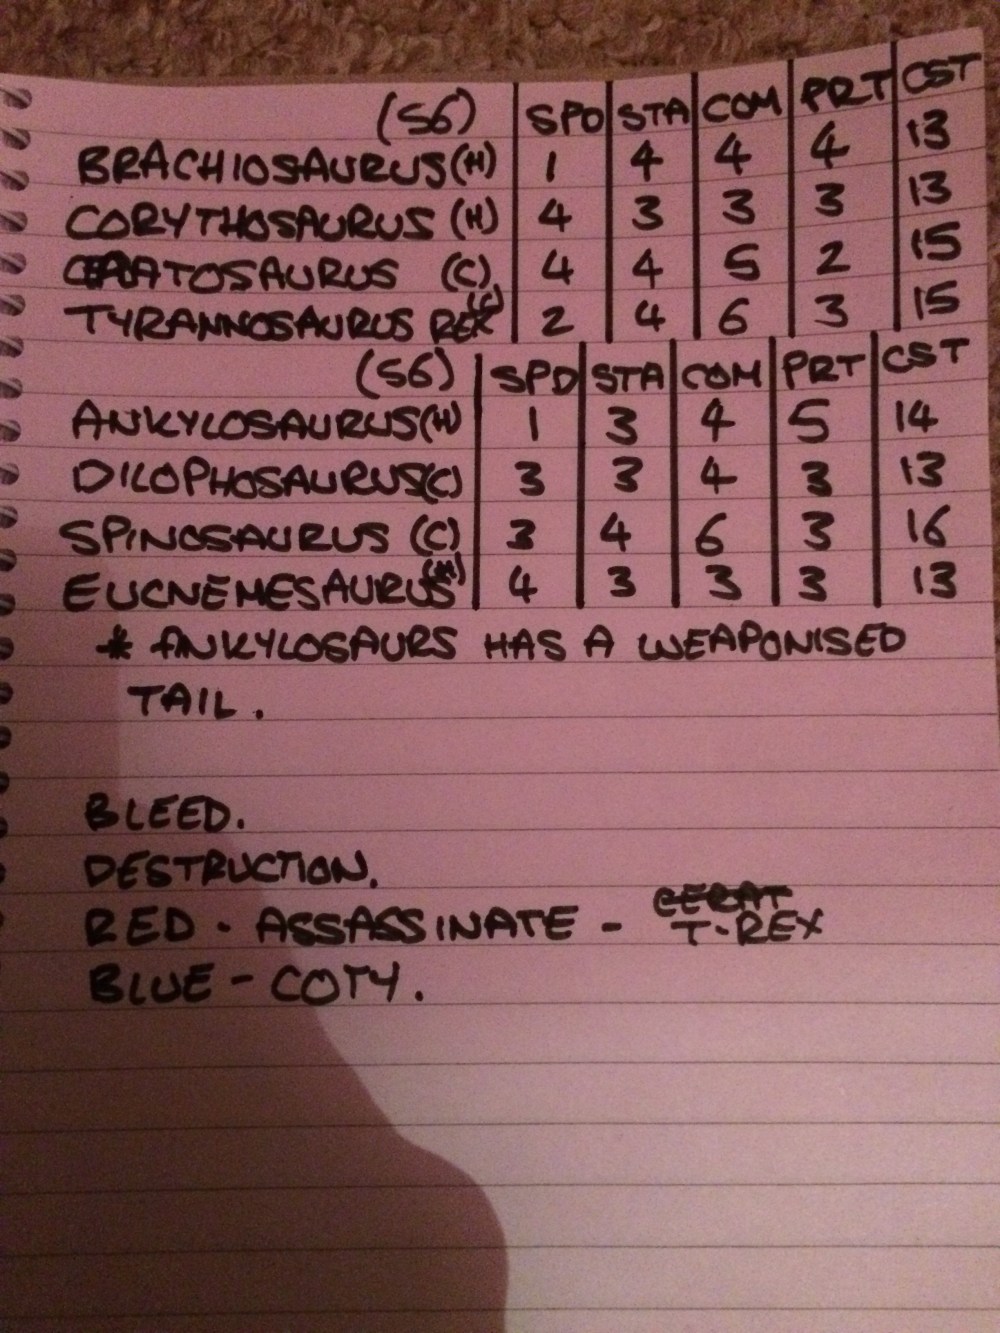 (56) SPD STA COM PRT CST
BRACHIOSAURUS (H) 1 4 4 4 13
CORYTHOSAURUS (H) 4 3 3 3 13
CERATOSAURUS (C) 4 4 5 2 15
TYRANNOSAURUS REX (C) 2 4 6 3 15
(56) SPD STA COM PRT CST
ANKYLOSAURUS (H) 1 3 4 5 14
DILOPHOSAURUS (C) 3 3 4 3 13
SPINOSAURUS (C) 3 4 6 3 16
EUCNEMESAURUS (H) 4 3 3 3 13
* ANKYLOSAURS HAS A WEAPONISED
TAIL.
BLEED.
DESTRUCTION.
CERAT
RED - ASSASSINATE - T-REX
BLUE - COTY.